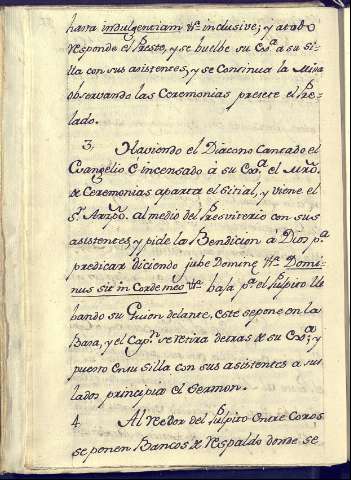 hasta indulgentiam &c. inclusive; y a todo
responde el Preste, y se buelbe su Exa. a su si-
lla con sus asistentes, y se Continua la Missa
observando las Ceremonias presete el Pre-
lado.
3. Haviendo el Diacono Cantado el
Evangelio è incensado à su Exa. el Mro.
de Ceremonias aparta el sitial, y viene el
Sr. Arzpo. al medio del Presviterio con sus
asistentes, y pide la Bendicion à Dios pa.
predicar diciendo jube Domine &c. Domi-
nus sit in Corde meo &c. baja pr. el Pulpito lle
bando su Guion delante, este se pone en la
Basa, y el Capn. se retira detras de su Exa; y
puesto en su silla con sus asistentes a sus
lados principia el Sermon.
4. Al rededor del Pulpito entre Coros
se ponen Bancos de respaldo donde se